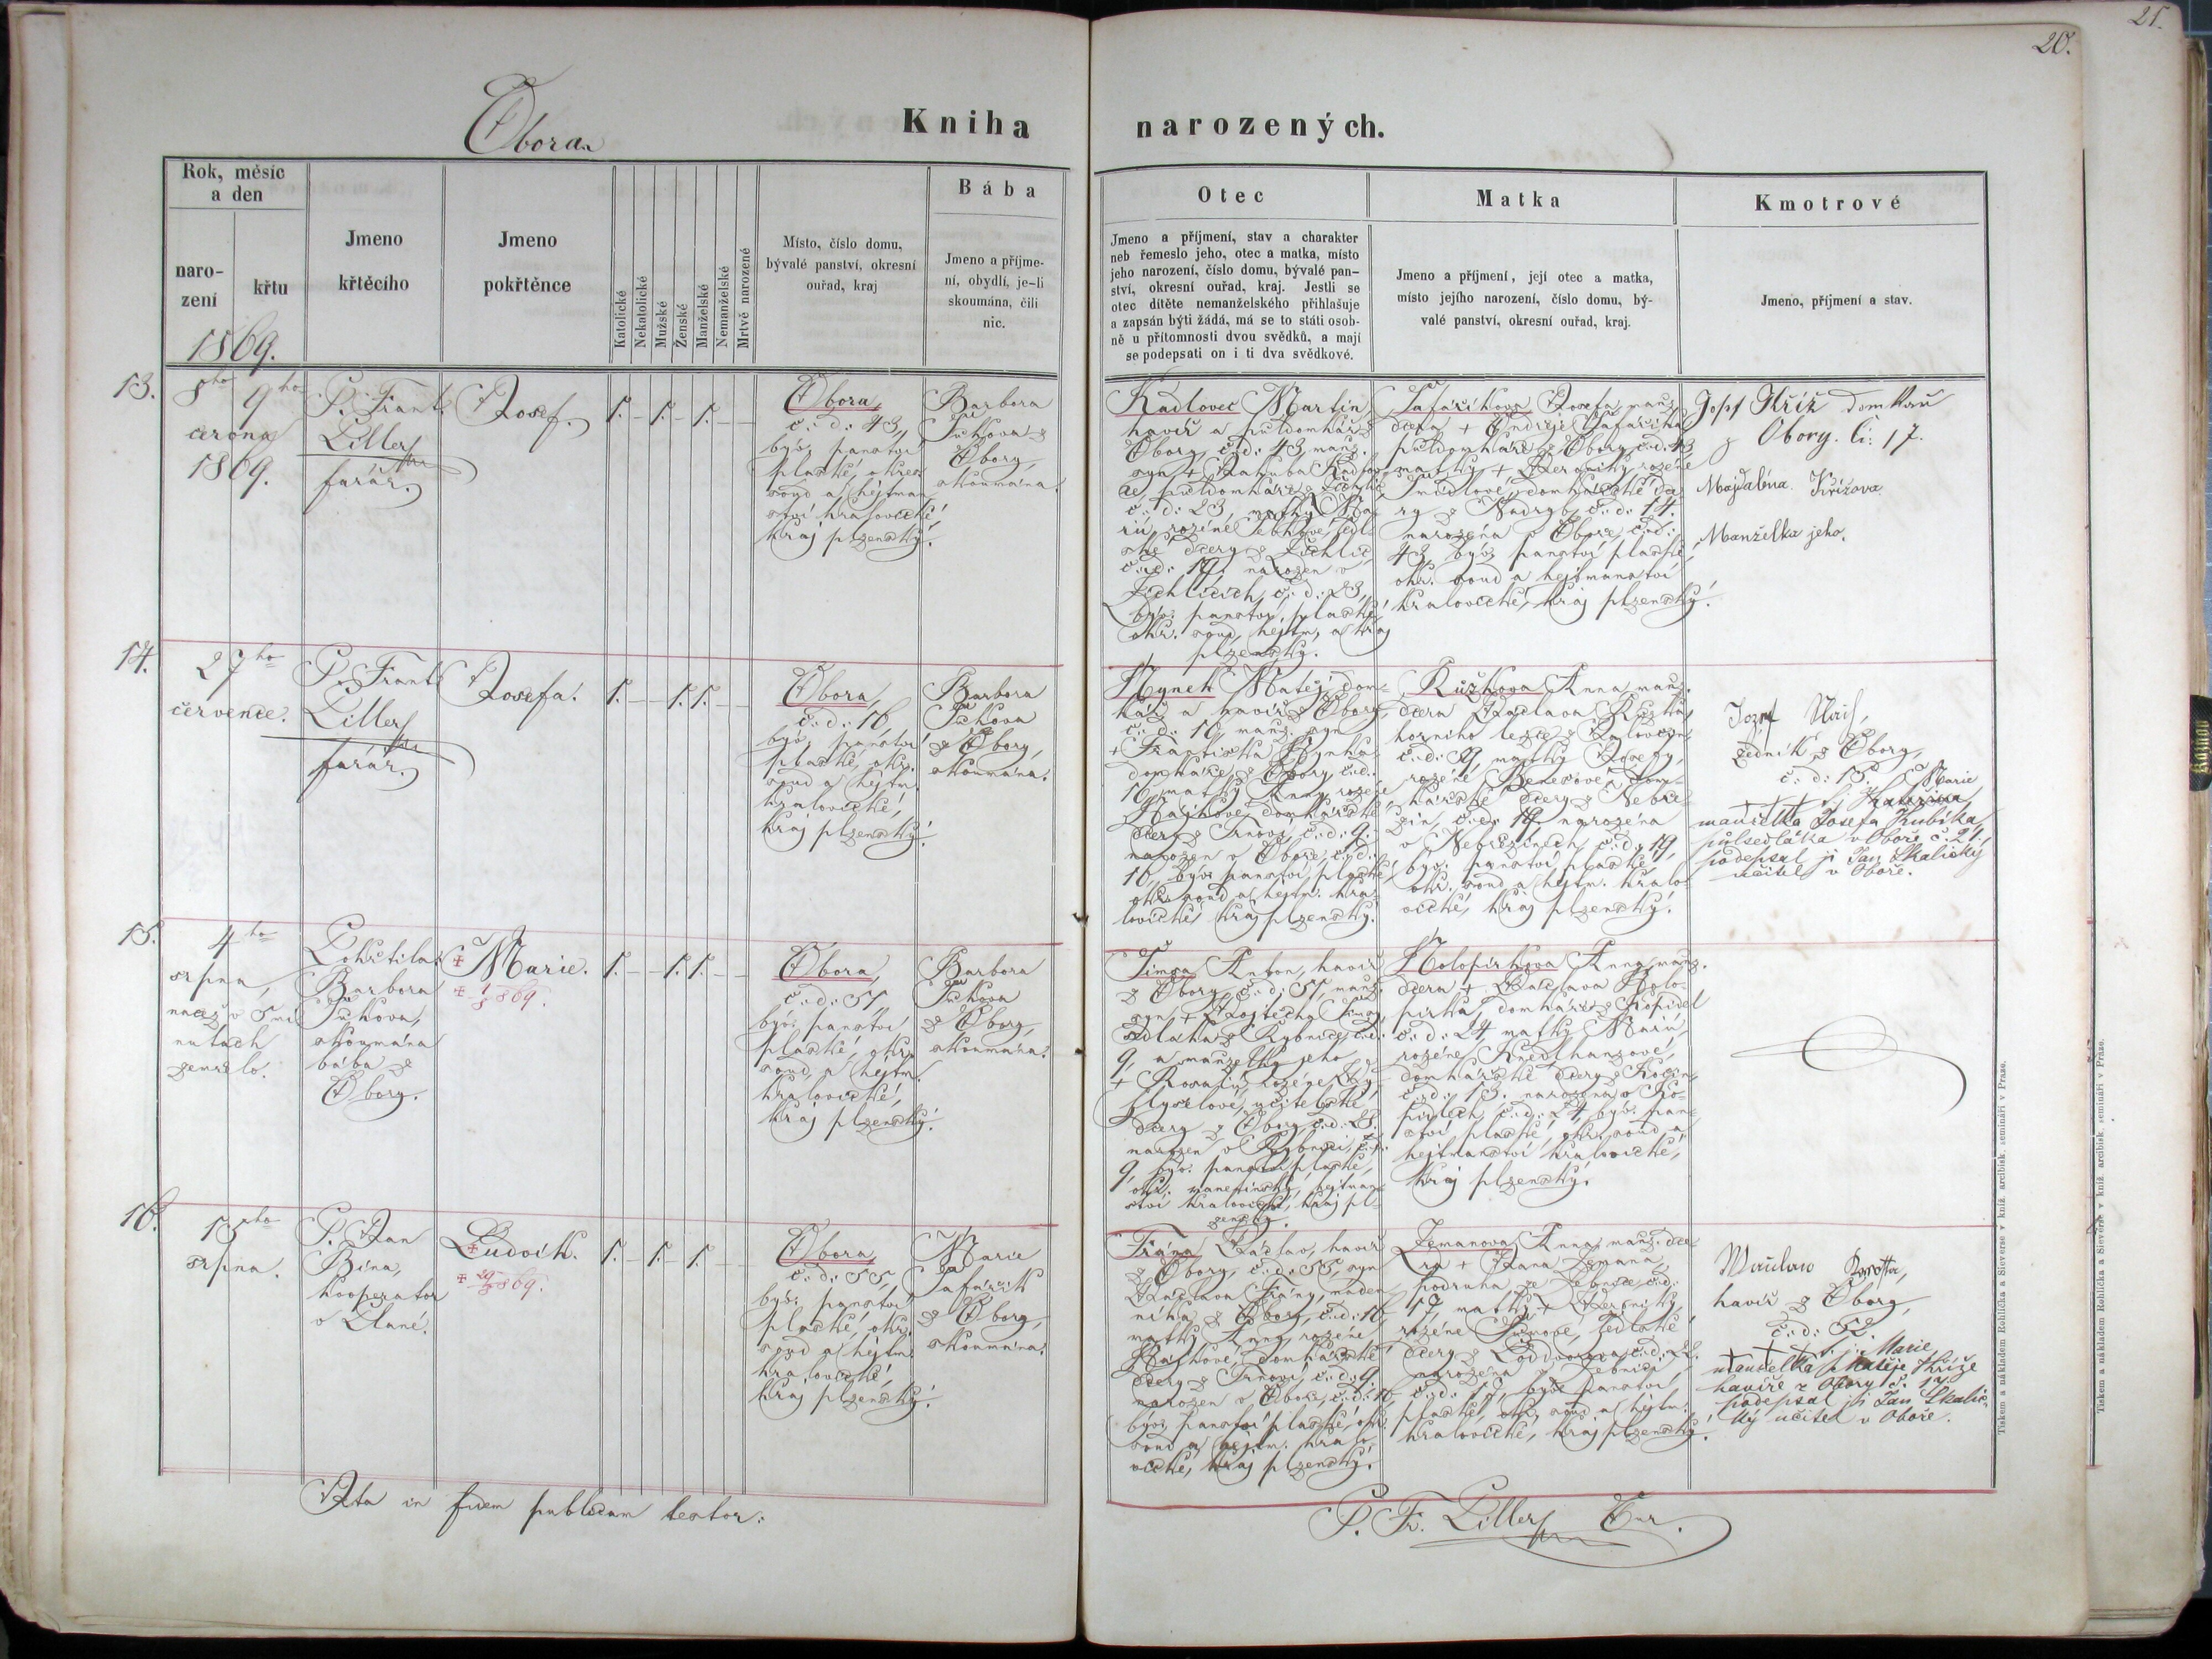 21.
20.
Obora.
Kniha narozených.
Rok, měsíc
a den
naro-
zení
křtu
1869.
Jmeno
křtěcího
Jmeno
pokřtěnce
Katolické
Nekatolické
Mužské
Ženské
Manželské
Nemanželské
Mrtvě narozené
Místo, číslo domu,
bývalé panství, okresní
ouřad, kraj
Bába
Jmeno a příjme-
ní, obydlí, je-li
skoumána, čili
nic.
Otec
Jmeno a příjmení, stav a charakter
neb řemeslo jeho, otec a matka, místo
jeho narození, číslo domu, bývalé pan-
ství, okresní ouřad, kraj. Jestli se
otec dítěte nemanželského přihlašuje
a zapsán býti žádá, má se to státi osob-
ně u přítomnosti dvou svědků, a mají
se podepsati on i ti dva svědkové.
Matka
Jmeno a příjmení, její otec a matka,
místo jejího narození, číslo domu, bý-
valé panství, okresní ouřad, kraj.
Kmotrové
Jmeno, příjmení a stav.
13.
8ho 9ho
června
1869.
P. Frant.
Liller
farář.
Josef.
1. – 1. – 1. – –
Obora,
č. d. 43,
býv. panství
plaské, okres.
soud a hejtman-
ství kralovické,
kraj plzenský.
Barbora
z
Obory,
skoumána.
Radlovec Martin,
havíř a půldomkář z
Obory, č. d. 43, manž.
syn + Jakuba Radlov-
ce, půldomkáře z
č. d. 23, matky Ma-
rie, rozené
ské dcery z Žichlic
č. d. 19. narozen v
Žichlicích, č. d. 23,
býv. panství plaské,
okr. soud, hejtm. a kraj
plzenský.
Šafaříkova Josefa, manž.
dcera + Ondřeje Šafaříka,
půldomkáře z Obory, č. d. 43
matky + Veroniky, rozené
domkářské dce-
ry z Nadryb, č. d. 14.
narozena v Oboře, č. d.
43, býv. panství plaské,
okr. soud a hejtmanství
kralovické, kraj plzenský.
Josef Kříž domkař
z Obory. Č: 17.
Majdaléna Křížova
Manželka jeho.
14.
27ho
července.
P. Frant.
Liller
farář.
Josefa.
1. – – 1. 1. – –
Obora,
č. d. 16,
býv. panství
plaské, okr.
soud a hejtm.
kralovické,
kraj plzenský.
Barbora
z Obory,
skoumána.
Hynek Matěj, dom-
kář a havíř z Obory,
č. d. 16, manž. syn
+ Františka Hynka,
domkáře z Obory, č. d.
16, matky Anny, rozené
Hajkové, domkářské
dcery z Trnové, č. d. 9.
narozen v Oboře, č. d.
16, býv. panství plaské,
okr. soud a hejtm. kra-
lovické, kraj plzenský.
Růžkova Anna, manž.
dcera Václava Růžka,
horního lezce z
č. d. 9, matky Josefy,
rozené dom-
kářské dcery z Nebře-
zin, č. d. 19, narozena
v Nebřezinech, č. d. 19,
býv. panství plaské,
okr. soud a hejtm. kralo-
vické, kraj plzenský.
Jozef
zedník z Obory,
č. d. 15.
+ + + Marie
manželka Josefa Kubíka
půlsedláka v Oboře č. 21,
podepsal ji Jan Skalický
učitel v Oboře.
15.
4ho
srpna,
načež v 5 mi-
nutách
zemřelo.
Pokřtila
Barbora
skoumána
bába z
Obory.
Marie.
+ 4/8 869.
1. – – 1. 1. – –
Obora,
č. d. 51,
býv. panství
plaské, okr.
soud a hejtm.
kralovické,
kraj plzenský.
Barbora
z Obory,
skoumána.
Šimsa Anton, havíř
z Obory, č. d. 51, manž.
syn + Vojtěcha Šimsy,
sedláka z Rybnice, č. d.
9, a manželky jeho
+ Rosalie, rozené
učitelské
dcery z Obory, č. d. 28.
narozen v Rybnici, č. d.
9, býv. panství plaské,
okr. manetínský, hejtman-
ství kralovické, kraj pl-
zenský.
Holopírkova Anna, manž.
dcera + Václava Holo-
pírka, domkáře z
č. d. 24, matky Marie,
rozené Knedlhanzové,
domkářské dcery z
č. d. 13. narozena v
č. d. 24, býv. pan-
ství plaské, okr. soud a
hejtmanství kralovické,
kraj plzenský.
16.
15ho
srpna.
P. Jan
Bína,
kooperator
v Plané.
Ludvík.
+ 29/8 869.
1. – 1. – 1. – –
Obora
č. d. 55,
býv. panství
plaské, okr.
soud a hejtm.
kralovické,
kraj plzenský.
Marie
Šafařík
z Obory,
skoumána.
Frána Václav, havíř
z Obory, č. d. 55, syn
Václava Frány,
z Obory, č. d. 16,
matky Anny, rozené
Hajkové, domkářské
dcery z Trnové, č. d. 9.
narozen v Oboře, č. d. 16,
býv. panství plaské, okr.
soud a hejtm. kralo-
vické, kraj plzenský.
Zemanova Anna, manž. dce-
ra + Jana Zemana,
podruha ze Žebnice, č. d.
17, matky + Veroniky,
rozené sedlské
dcery z
narozena v Žebnici,
č. d. 17, býv. panství
plaské, okr. soud a hejtm.
kralovické, kraj plzenský.
havíř z Obory,
č. d. 52.
+ + + Marie
manželka Matěje Kříže
havíře z Obory č. 17.
podepsal ji Jan Skalic-
ký učitel v Oboře.
Ita in fidem publicam testor:
P. Fr. Liller
Tiskem a nákladem Rohlíčka a Sieverse v kníž. arcibisk. semináři v Praze.
Tiskem a nákladem Rohlíčka a Sieverse v kníž. arcibisk. semináři v Praze.